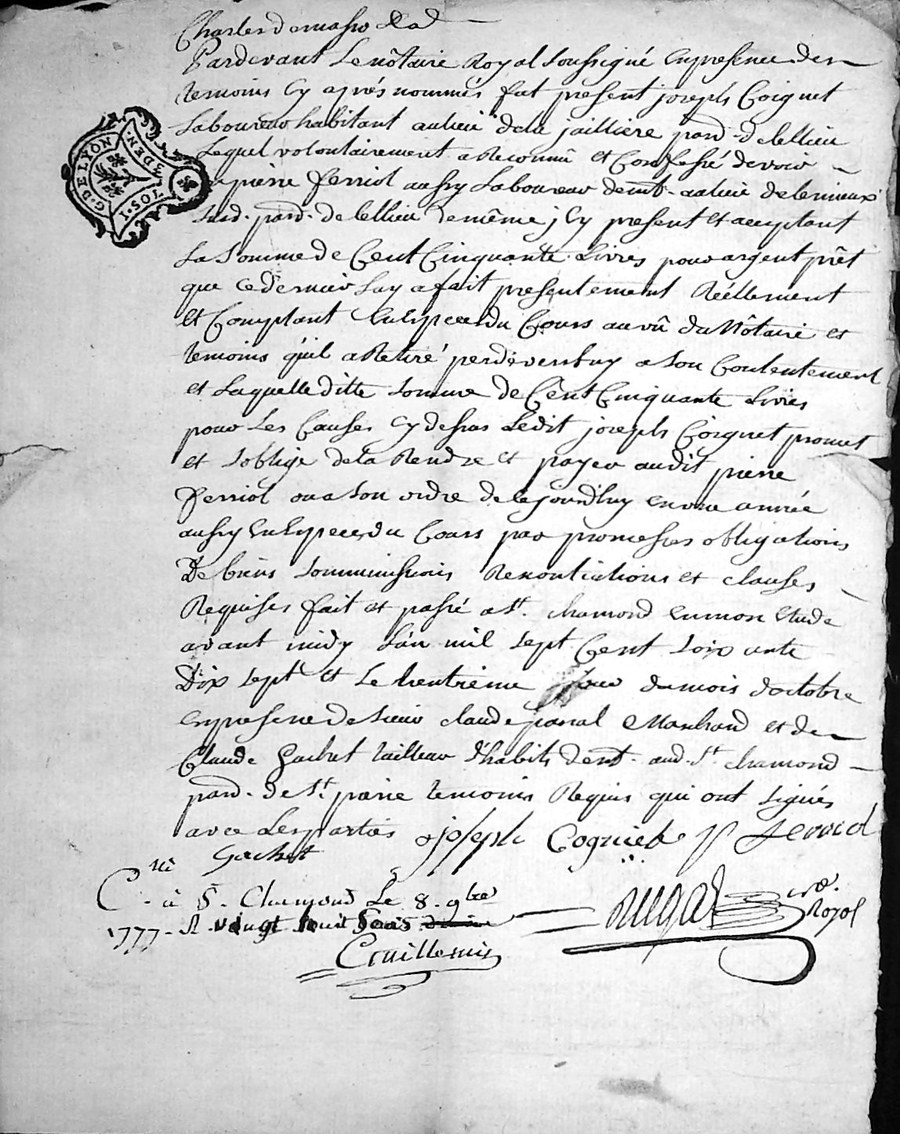 Pardevant Le nôtaire Royal soussigné en presence des
temoins Cy aprés nommés fut présent joseph Coignet
Laboureur habitant au lieu de la jailliere par.d de
Lequel volontairement a Reconnu et Confessé devoir
pierre ferriol aussy Laboureur dem.t au lieu de
sud. par.d de même icy present et acceptant
La Somme de Cent Cinquante Livres pour argent prêt
que ce dernier Luy a fait presentement Réellement
et Comptant En Especes du Cours au vû du Nôtaire et
temoins qu'il a Retiré perdevers luy a son Contentement
et Laquelle ditte somme de Cent Cinquante Livres
pour Les Causes Cy dessus Ledit joseph Coignet promet
et s'oblige de la Rendre et payer audit pierre
ferriol ou a son ordre de cejourd'huy en une année
aussy En Especes du Cours par promesses obligations
De biens soummissions Renontiations et clauses
Requises fait et passé a St. chamond en mon Etude
avant midy L'an mil sept Cent soixante
Dix sept et Le trentième jour du mois d'octobre
en presence de sieur claude pascal Marchand et de
Claude Gachet tailleur d'habits dem.t aud. St. chamond
par.d de St. pierre temoins Requis qui ont signés
avec Les parties joseph Cognet p ferriol
Gachet
C.lé à St. Chamond Le 8. 9bre
1777. R. vingt huit sols
Royal
G. DE LYON